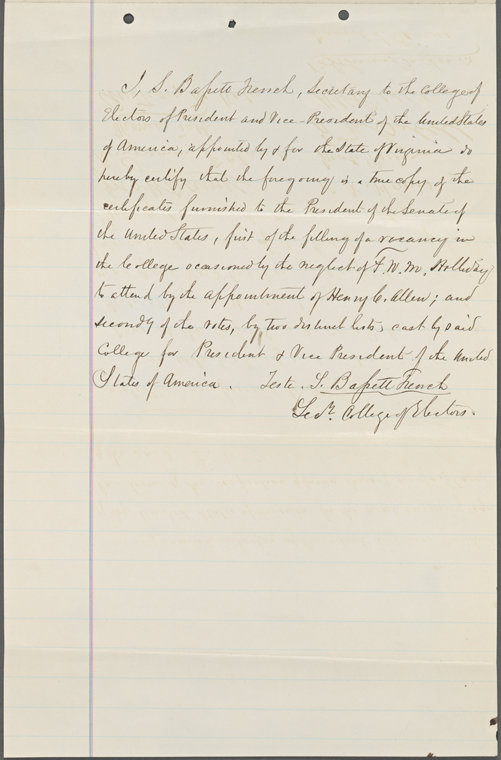 I, S. Bassett French, Secretary to the College of
Electors of President and Vice-President of the United States
of America, appointed by & for the State of Virginia do
hereby certify that the foregoing is a true copy of the
certificates furnished to the President of the Senate of
the United States, first of the filling of a vacancy in
the College occasioned by the neglect of F. W. M. Holliday
to attend by the appointment of Henry C. Allen; and
secondly of the votes, by two distinct lists, cast by said
College for President & Vice President of the United
States of America. Teste. S. Bassett French
Secy. College of Electors.